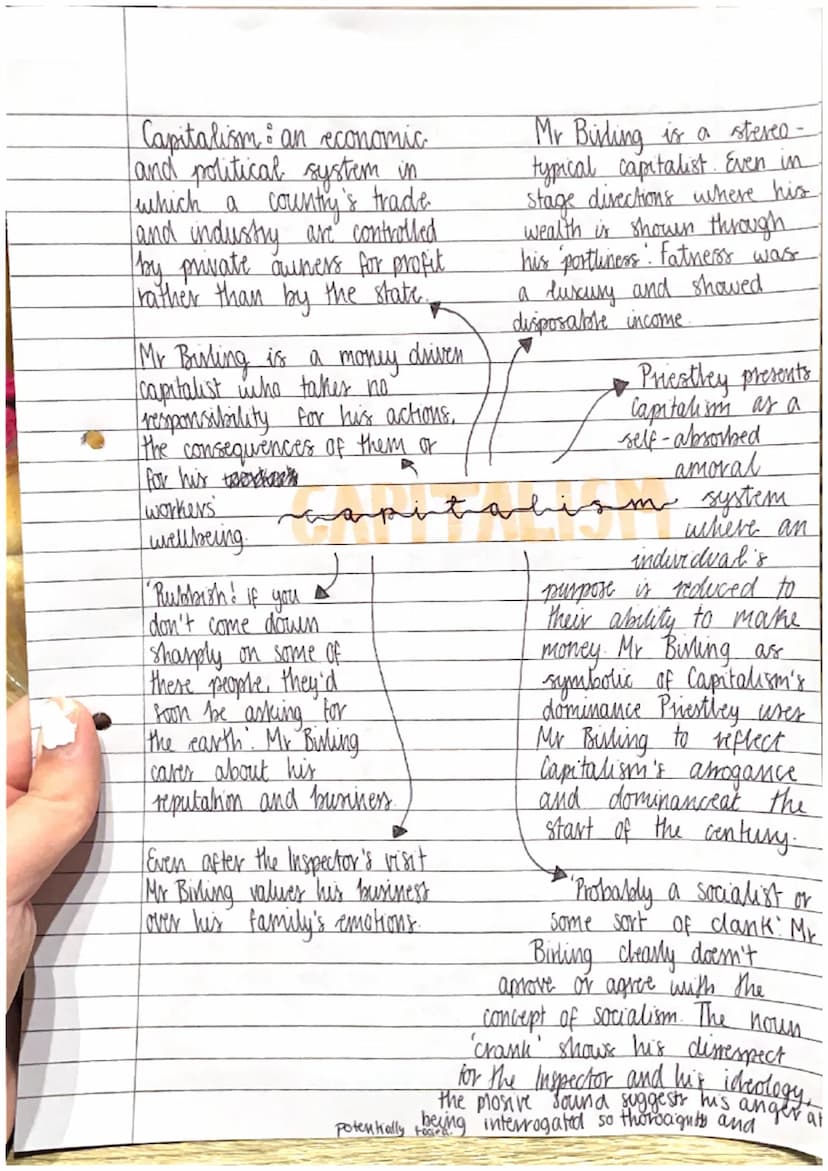 Capitalism: an economic
and political system in
which a country's trade
and industry are controlled
by private owners for profit
rather than by the state.
Mr Birling is a stereo-
typical capitalist. Even in
stage directions where his
wealth is shown through
his 'portliness'. Fatness was
a luxury and showed
disposable income.
Mr Birling is a money driven
capitalist who takes no
responsibility for his actions,
the consequences of them or
for his
workers'
wellbeing.
Priestley presents
Capitalism as a
self-absorbed
amoral
system
where an
individual's
purpose is reduced to
their ability to make
money. Mr Birling as
symbolic of Capitalism's
dominance Priestley uses
Mr Birling to reflect
Capitalism's arrogance
and dominanceat the
start of the century.
CAPITALISM
capitalism
'Rubbish! if you
don't come down
sharply on some of
these people, they'd
soon be asking for
the earth'. Mr Birling
cares about his
reputation and business.
Even after the Inspector's visit
Mr Birling values his business
over his family's emotions.
'Probably a socialist or
some sort of clank'. Mr
Birling clearly doesn't
aprove or agree with the
concept of socialism. The noun
'crank' shows his disrespect
for the Inspector and his ideology,
the plosive sound suggests his anger at
being interrogated so thoroughts and
potentially